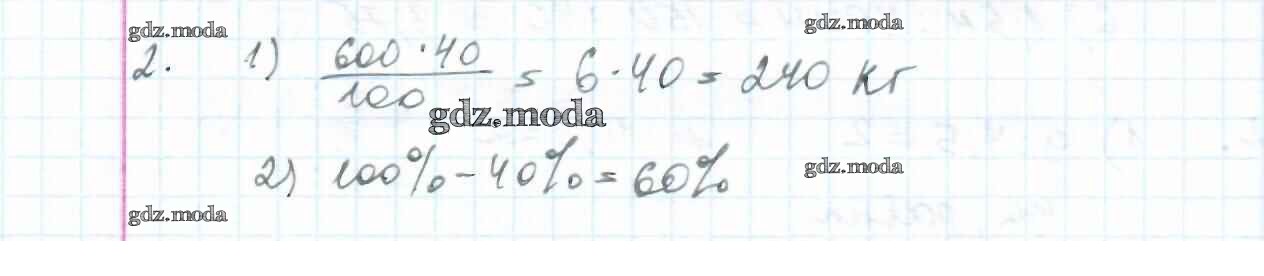 gdz.moda gdz.moda
2. 1) 600·40/100 = 6·40 = 240 кг
gdz.moda
2) 100% - 40% = 60% gdz.moda
gdz.moda